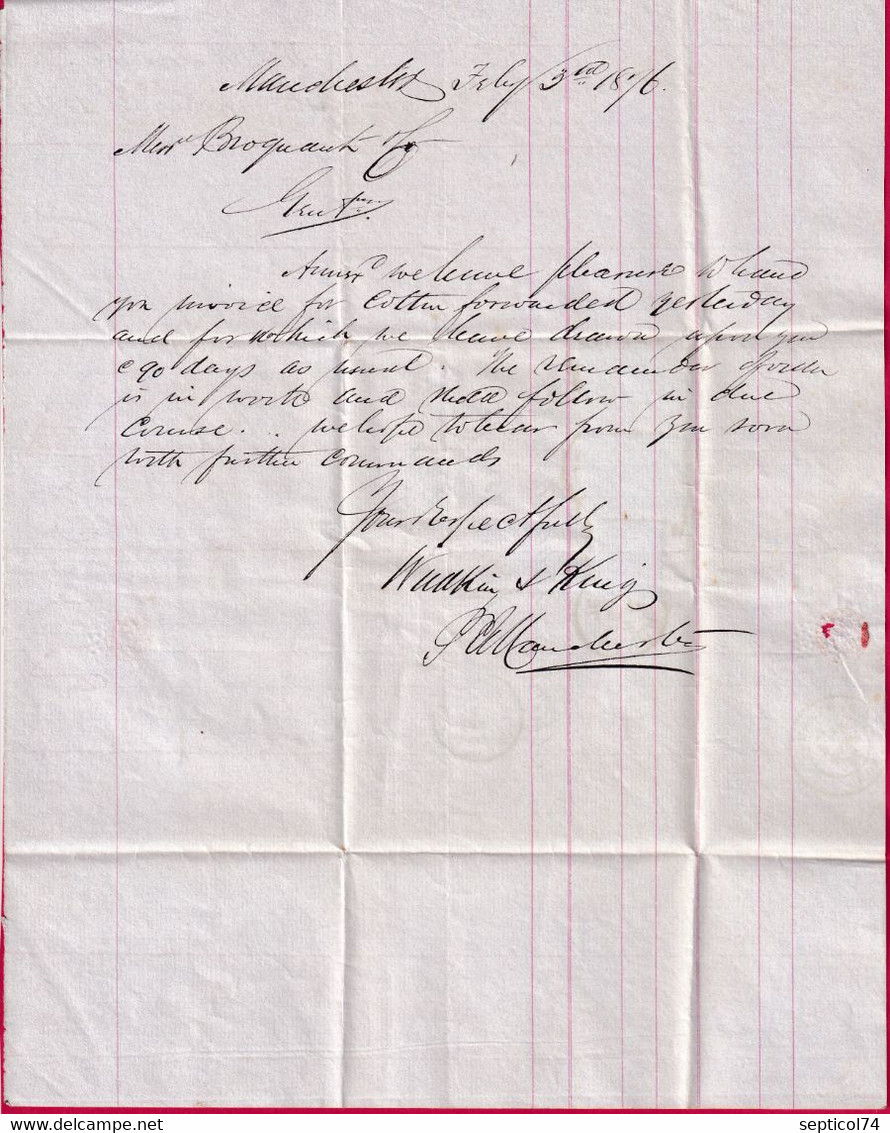 Manchester Feby 3rd 1876.
Messrs Broquant & Co
Gentmn
Annexd we have pleasure to hand
you invoice for Cotton forwarded yesterday
and for which we have drawn upon you
@ 90 days as usual. The remainder of order
is in work and shall follow in due
Course... we hope to hear from you soon
with further Commands
Yours respectfully
Wadkin & King
Manchester
www.delcampe.net
septicol74